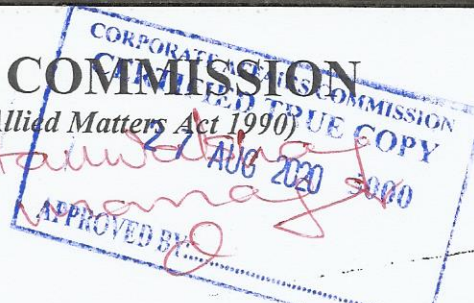 COMMISSION
Allied Matters Act 1990)
CORPORATE AFFAIRS COMMISSION
CERTIFIED TRUE COPY
27 AUG 2020 5000
APPROVED BY: